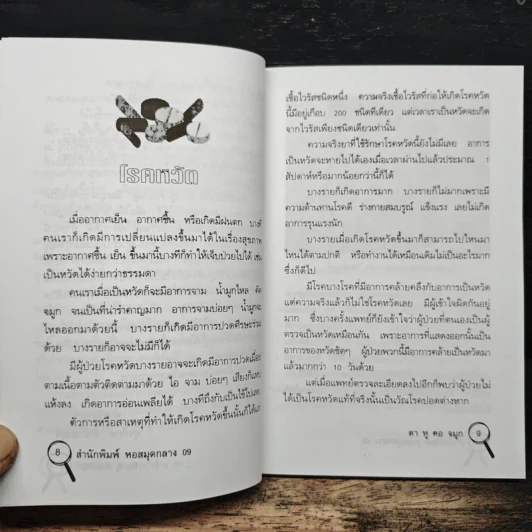 โรคหวัด
เมื่ออากาศเย็น อากาศชื้น หรือเกิดมีฝนตก
คนเราก็เกิดมีการเปลี่ยนแปลงขึ้นมาได้ในเรื่องสุขภาพ
เพราะอากาศชื้น เย็น ขึ้นมานี้บางทีก็ทำให้เจ็บป่วยไปได้ เช่น
เป็นหวัดได้ง่ายกว่าธรรมดา
คนเราเมื่อเป็นหวัดก็จะมีอาการจาม น้ำมูกไหล คัด
จมูก จนเป็นที่น่ารำคาญมาก อาการจามบ่อยๆ น้ำมูกจะ
ไหลออกมาด้วยนี้ บางรายก็เกิดมีอาการปวดศีรษะรวม
ด้วย บางรายก็อาจจะไม่มีก็ได้
มีผู้ป่วยโรคหวัดบางรายอาจจะเกิดมีอาการปวดเมื่อย
ตามเนื้อตามตัวติดตามมาด้วย ไอ จาม บ่อยๆ เสียงก็แหบ
แห้งลง เกิดอาการอ่อนเพลียได้ บางทีถึงกับเป็นไข้ไปเลย
ตัวการหรือสาเหตุที่ทำให้เกิดโรคหวัดขึ้นนั้นก็ได้แก่
8 สำนักพิมพ์ หอสมุดกลาง 09
เชื้อไวรัสชนิดหนึ่ง ความจริงเชื้อไวรัสที่ก่อให้เกิดโรคหวัด
นี้มีอยู่เกือบ 200 ชนิดทีเดียว แต่เวลาเราเป็นหวัดจะเกิด
จากไวรัสเพียงชนิดเดียวเท่านั้น
ความจริงยาที่ใช้รักษาโรคหวัดนี้ยังไม่มีเลย อาการ
เป็นหวัดจะหายไปได้เองเมื่อเวลาผ่านไปแล้วประมาณ 1
สัปดาห์หรือมากน้อยกว่านี้ก็ได้
บางรายก็เกิดอาการมาก บางรายก็ไม่มากเพราะมี
ความต้านทานโรคดี ร่างกายสมบูรณ์ แข็งแรง เลยไม่เกิด
อาการรุนแรงนัก
บางรายเมื่อเกิดโรคหวัดขึ้นมาก็สามารถไปไหนมา
ไหนได้ตามปกติ หรือทำงานได้เหมือนเดิมไม่เป็นอะไรมาก
ซึ่งก็ดีไป
มีโรคบางโรคที่มีอาการคล้ายคลึงกับอาการเป็นหวัด
แต่ความจริงแล้วก็ไม่ใช่โรคหวัดเลย มีผู้เข้าใจผิดกันอยู่
มาก ซึ่งบางครั้งแพทย์ก็ยังเข้าใจว่าผู้ป่วยที่ตนเองเป็นผู้
ตรวจเป็นหวัดเหมือนกัน เพราะอาการที่แสดงออกนั้นเป็น
อาการของหวัดชัดๆ ผู้ป่วยพวกนี้มีอาการคล้ายเป็นหวัดมา
แล้วมากกว่า 10 วันด้วย
แต่เมื่อแพทย์ตรวจละเอียดลงไปอีกก็พบว่าผู้ป่วยไม่
ได้เป็นโรคหวัดแท้ที่จริงนั้นเป็นวัณโรคปอดต่างหาก
ตา หู คอ จมูก 9